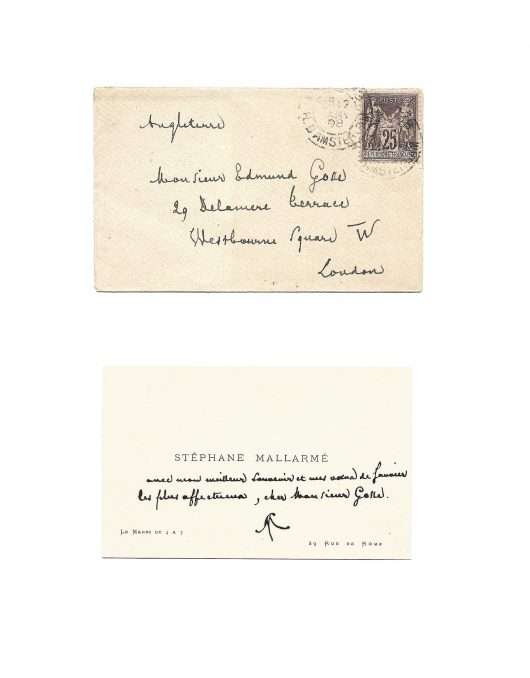 Angleterre
POSTES
25
Monsieur Edmund Gosse
29 Delamere Terrace
Westbourne Square W
London
STÉPHANE MALLARMÉ
avec mon meilleur souvenir et mes vœux de Janvier
les plus affectueux, cher Monsieur Gosse.
LE MARDI DE 4 A 7
89 RUE DE ROME